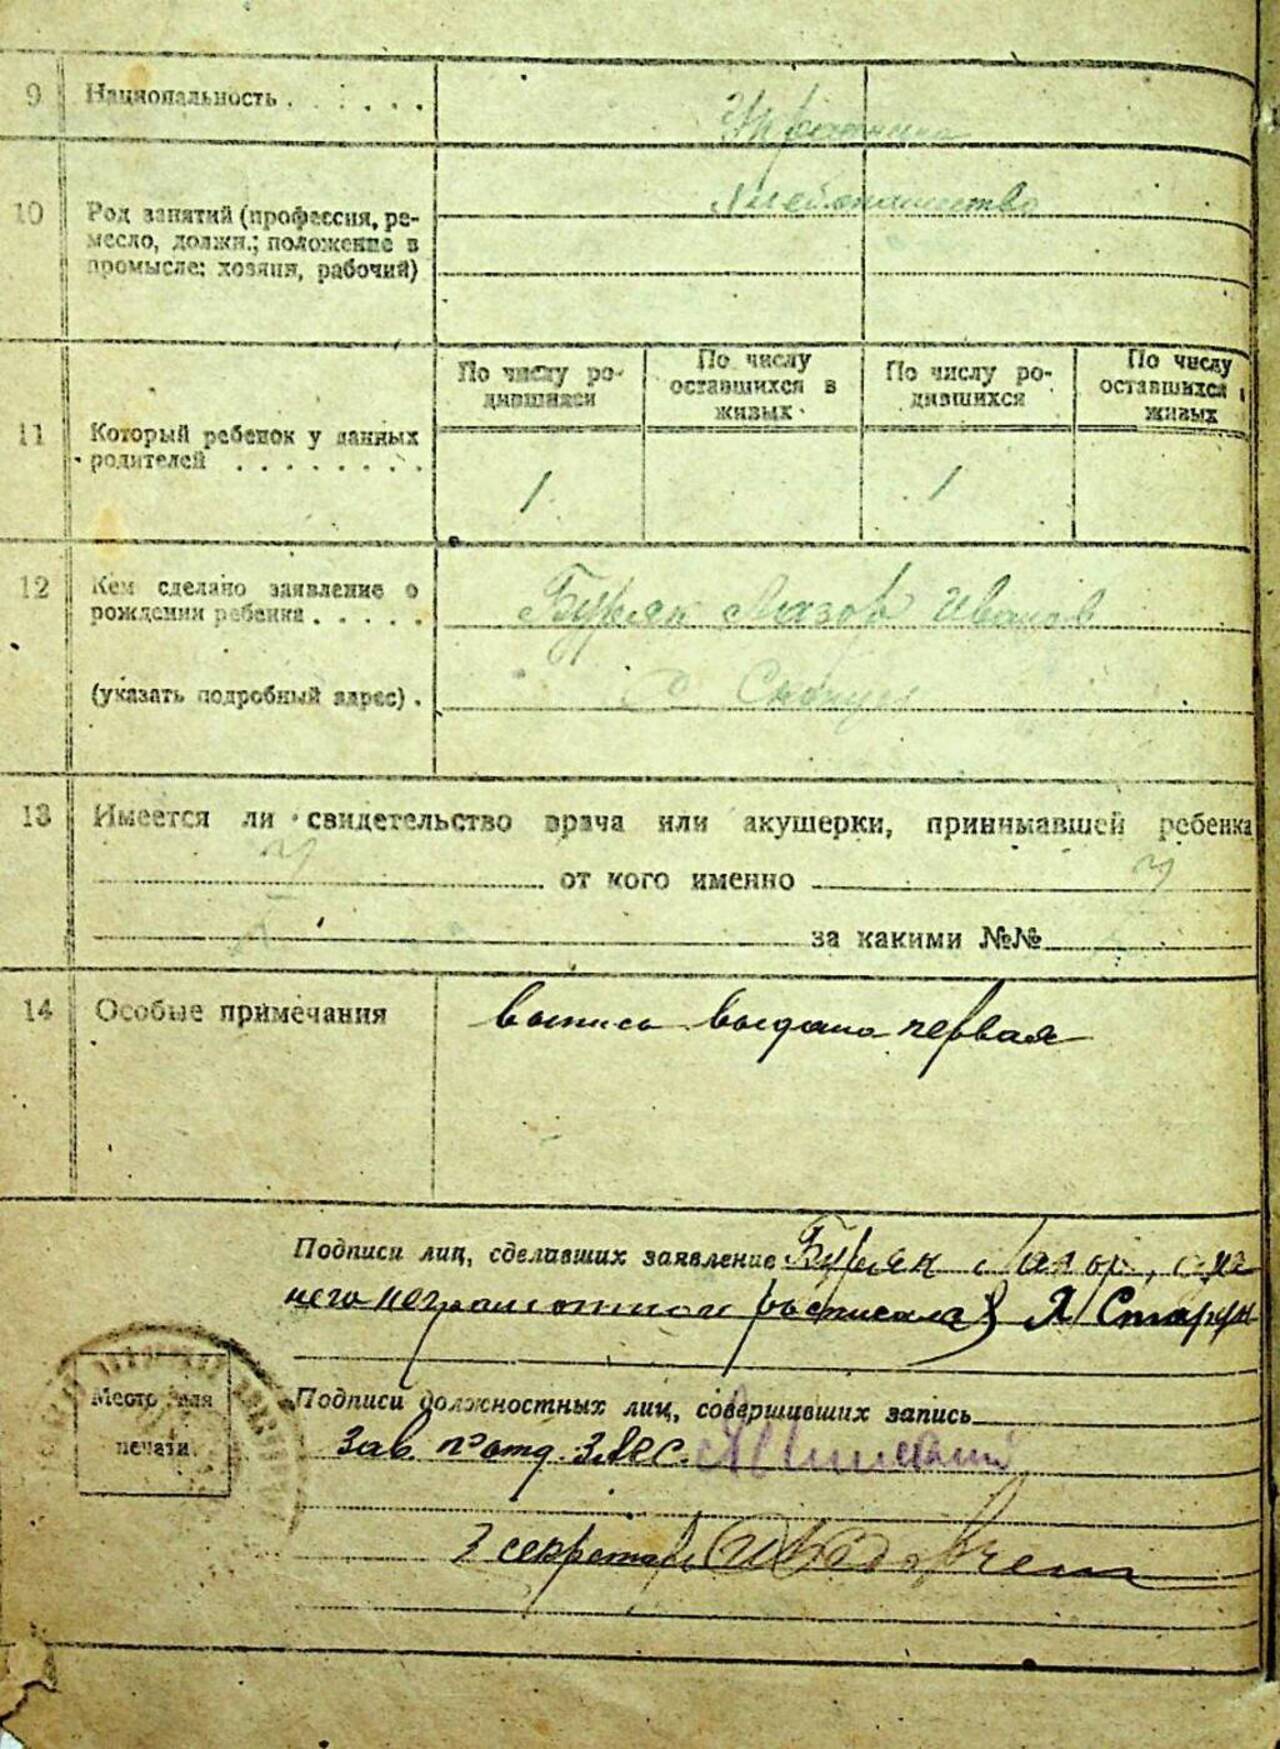 9 Национальность . . . . . .
10 Род занятий (профессия, ре-
месло, должн.; положение в
промысле: хозяин, рабочий)
Хлебопашество
11 Который ребенок у данных
родителей . . . . . . . .
По числу ро-
дившихся
По числу
оставшихся в
живых
По числу ро-
дившихся
По числу
оставшихся
живых
1 1
12 Кем сделано заявление о
рождении ребенка . . . . .
Буряк Лазор Иванов
(указать подробный адрес) .
с.
13 Имеется ли свидетельство врача или акушерки, принимавшей ребенка
от кого именно
за какими №№
14 Особые примечания
выпись выдана первая
Подписи лиц, сделавших заявление Буряк Лазор, а за
него неграмотного росписался Я
Место для
печати.
Подписи должностных лиц, совершивших запись
Зав. п-отд. ЗАГС.
секретарь